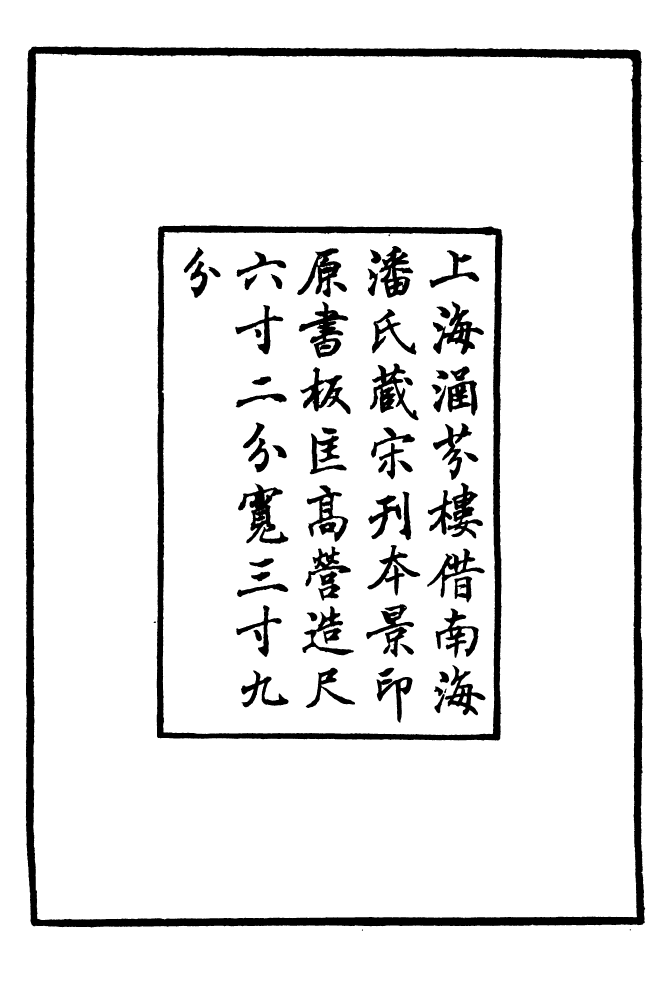 上海涵芬樓借南海
潘氏藏宋刊本景印
原書板匡高營造尺
六寸二分寬三寸九
分